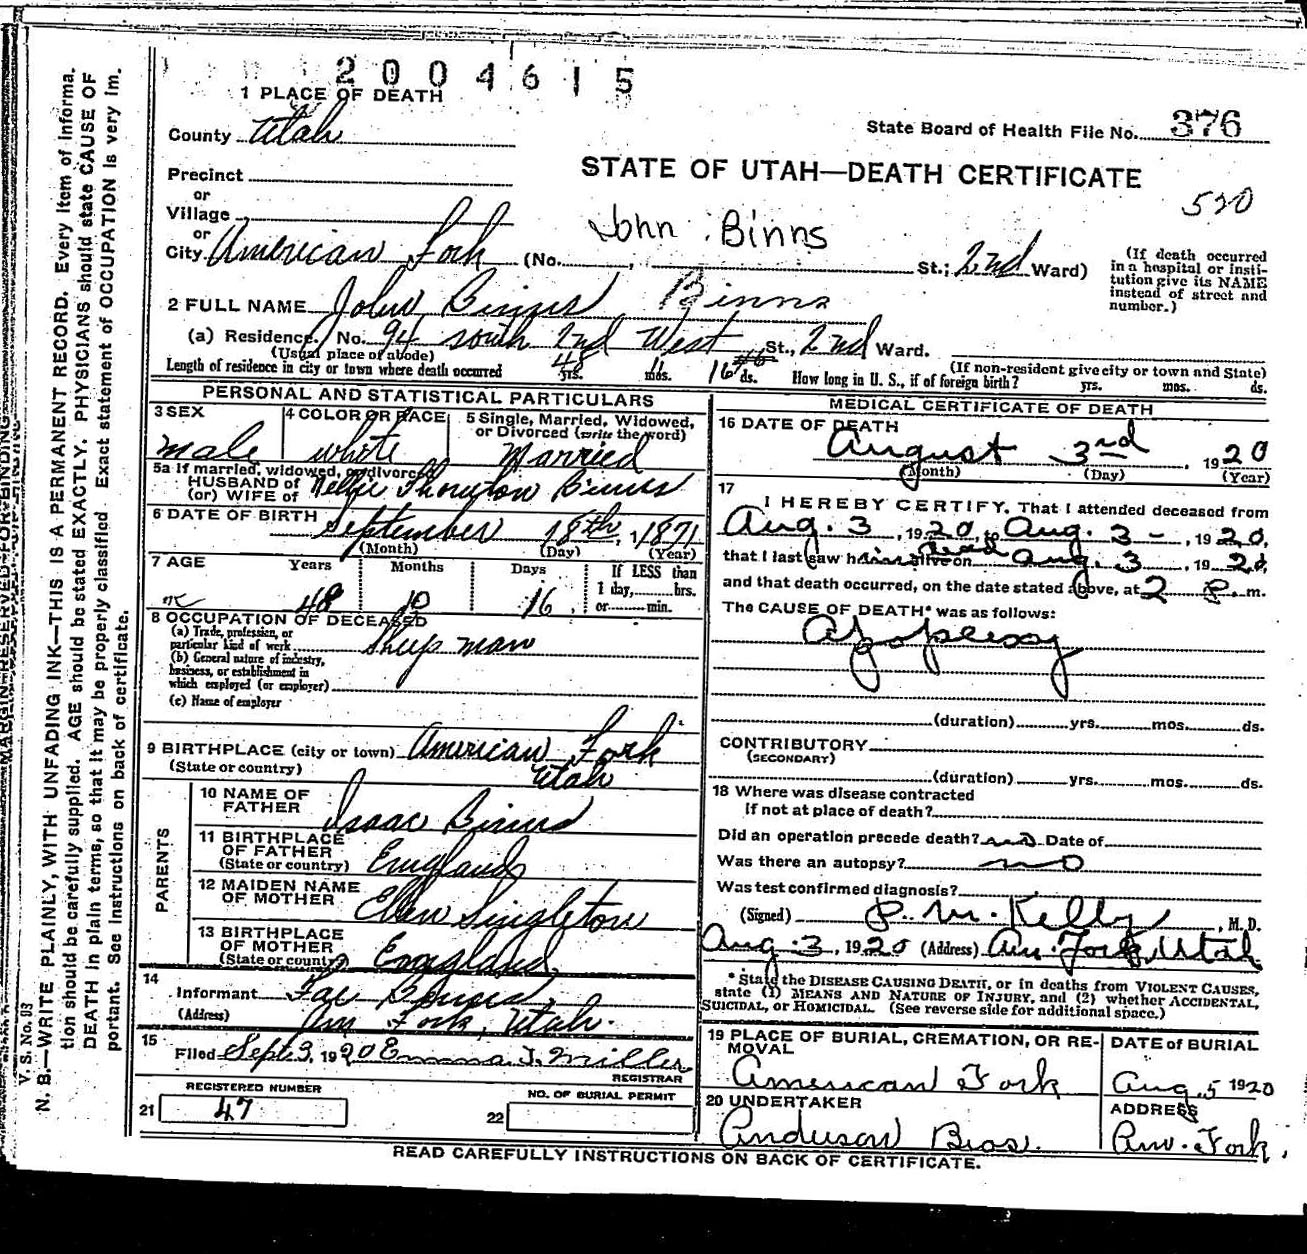 2004615
1 PLACE OF DEATH
County Utah
State Board of Health File No. 376
Precinct
STATE OF UTAH—DEATH CERTIFICATE
520
or
Village
or
City American Fork (No. , St.; 2nd Ward)
John Binns
(If death occurred in a hospital or insti-
tution give its NAME
instead of street and
number.)
2 FULL NAME John Binns Binns
(a) Residence. No. 94 south 2nd West St., 2nd Ward.
(Usual place of abode) (If non-resident give city or town and State)
Length of residence in city or town where death occurred 48 yrs. mos. 16 ds. How long in U. S., if of foreign birth? yrs. mos. ds.
PERSONAL AND STATISTICAL PARTICULARS
3 SEX
male
4 COLOR OR RACE
white
5 Single, Married, Widowed,
or Divorced (write the word)
Married
5a If married, widowed, or divorced
HUSBAND of
(or) WIFE of Nellie Thornton Binns
6 DATE OF BIRTH September 18th, 1871
(Month) (Day) (Year)
7 AGE Years Months Days If LESS than
1 day, hrs.
or min.
48 10 16
8 OCCUPATION OF DECEASED
(a) Trade, profession, or
particular kind of work Sheep man
(b) General nature of industry,
business, or establishment in
which employed (or employer)
(c) Name of employer
9 BIRTHPLACE (city or town) American Fork
(State or country) Utah
PARENTS
10 NAME OF
FATHER Isaac Binns
11 BIRTHPLACE
OF FATHER
(State or country) England
12 MAIDEN NAME
OF MOTHER Ellen Singleton
13 BIRTHPLACE
OF MOTHER
(State or country) England
14
Informant Fae Binns,
(Address) Am Fork, Utah.
15
Filed Sept 3, 1920 Emma J. Miller
REGISTRAR
REGISTERED NUMBER
21 47
NO. OF BURIAL PERMIT
22
MEDICAL CERTIFICATE OF DEATH
16 DATE OF DEATH
August 3rd, 1920
(Month) (Day) (Year)
17
I HEREBY CERTIFY, That I attended deceased from
Aug. 3, 1920, to Aug. 3-, 1920,
that I last saw him alive on dead Aug. 3, 1920,
and that death occurred, on the date stated above, at 2 P. m.
The CAUSE OF DEATH* was as follows:
Apoplexy
(duration) yrs. mos. ds.
CONTRIBUTORY
(SECONDARY)
(duration) yrs. mos. ds.
18 Where was disease contracted
if not at place of death?
Did an operation precede death? no Date of
Was there an autopsy? no
Was test confirmed diagnosis?
(Signed) P. M. Kelly, M. D.
Aug. 3, 1920 (Address) Am. Fork, Utah
* State the DISEASE CAUSING DEATH, or in deaths from VIOLENT CAUSES,
state (1) MEANS AND NATURE OF INJURY, and (2) whether ACCIDENTAL,
SUICIDAL, or HOMICIDAL. (See reverse side for additional space.)
19 PLACE OF BURIAL, CREMATION, OR RE-
MOVAL
American Fork
DATE of BURIAL
Aug. 5 1920
20 UNDERTAKER
Anderson Bros.
ADDRESS
Am. Fork,
READ CAREFULLY INSTRUCTIONS ON BACK OF CERTIFICATE.
MARGIN RESERVED FOR BINDING
V. S. No. 98
N. B.—WRITE PLAINLY, WITH UNFADING INK—THIS IS A PERMANENT RECORD. Every item of informa-
tion should be carefully supplied. AGE should be stated EXACTLY. PHYSICIANS should state CAUSE OF
DEATH in plain terms, so that it may be properly classified. Exact statement of OCCUPATION is very im-
portant. See instructions on back of certificate.